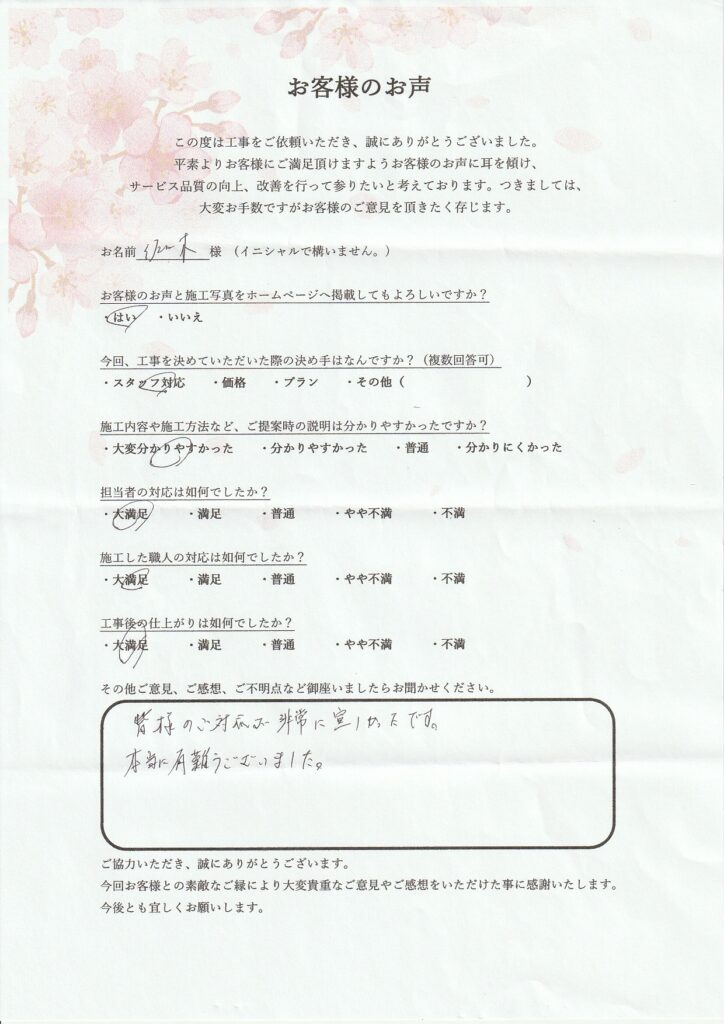 お客様のお声
この度は工事をご依頼いただき、誠にありがとうございました。
平素よりお客様にご満足頂けますようお客様のお声に耳を傾け、
サービス品質の向上、改善を行って参りたいと考えております。つきましては、
大変お手数ですがお客様のご意見を頂きたく存じます。
お名前 佐々木 様 （イニシャルで構いません。）
お客様のお声と施工写真をホームページへ掲載してもよろしいですか？
・はい ・いいえ
今回、工事を決めていただいた際の決め手はなんですか？（複数回答可）
・スタッフ対応 ・価格 ・プラン ・その他（ ）
施工内容や施工方法など、ご提案時の説明は分かりやすかったですか？
・大変分かりやすかった ・分かりやすかった ・普通 ・分かりにくかった
担当者の対応は如何でしたか？
・大満足 ・満足 ・普通 ・やや不満 ・不満
施工した職人の対応は如何でしたか？
・大満足 ・満足 ・普通 ・やや不満 ・不満
工事後の仕上がりは如何でしたか？
・大満足 ・満足 ・普通 ・やや不満 ・不満
その他ご意見、ご感想、ご不明点など御座いましたらお聞かせください。
皆様のご対応が非常に宜しかったです。
本当に有難うございました。
ご協力いただき、誠にありがとうございます。
今回お客様との素敵なご縁により大変貴重なご意見やご感想をいただけた事に感謝いたします。
今後とも宜しくお願いします。